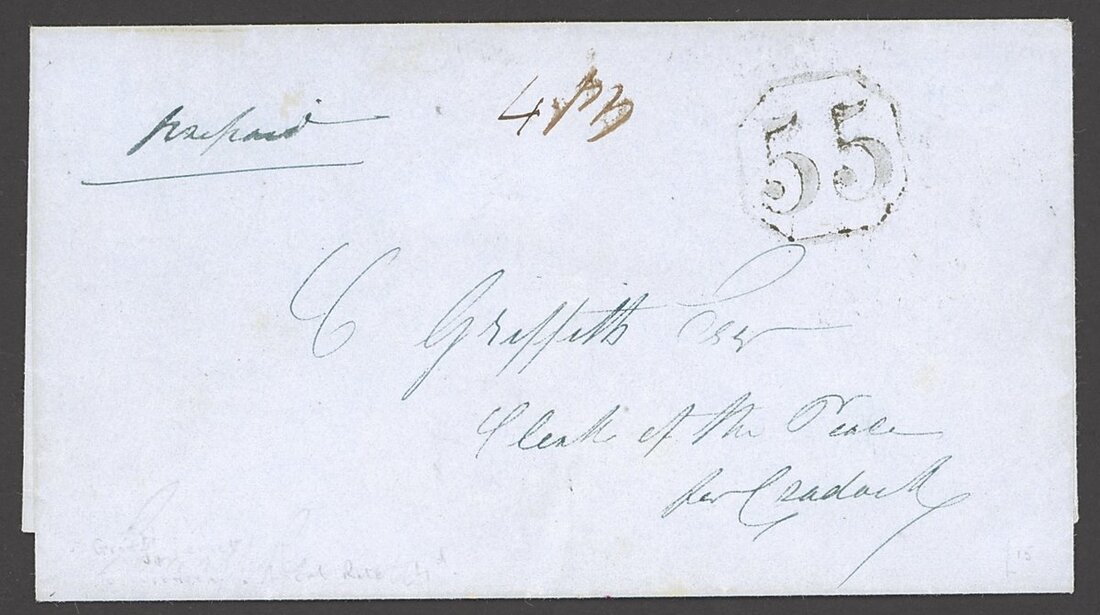 prepaid
4
55
C Griffith Esqr
Clerk of the Peace
for Cradock
Rate 4d.
£15